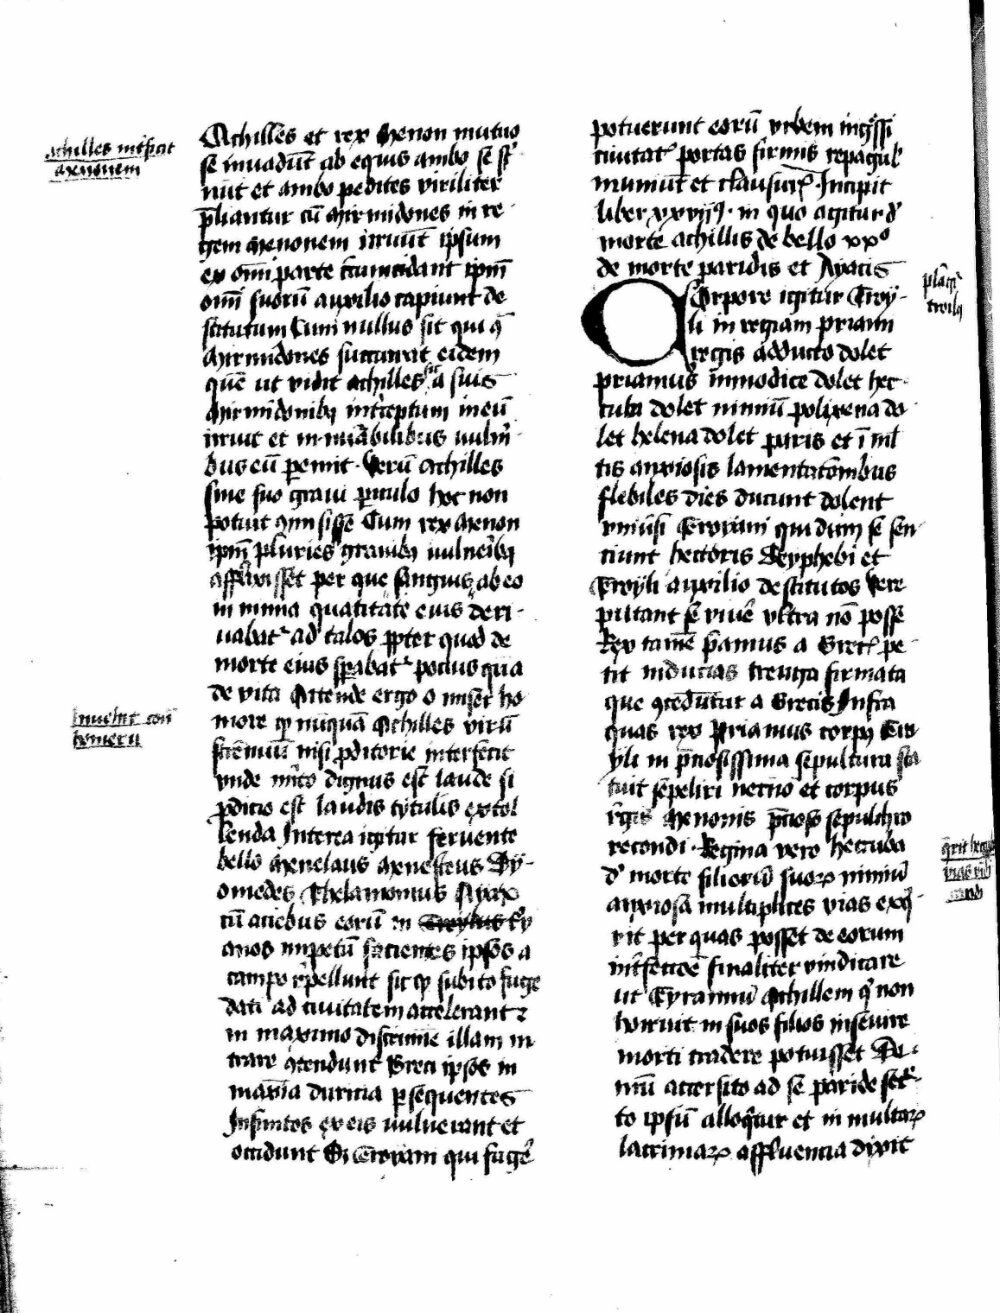 Achilles intficit
axenonem
Achilles et rex Menon mutuo
se inuadūt ab equis ambo se st'
nūt et ambo pedites viriliter
p̄liantur cū Mirmidones in re
gem Menonem irruūt ipsum
ex oīni parte circumdant ipm̄
omī suorū auxilio capiunt de
stitutum Cum nullus sit qui q̄
Mirmidones succurrat eidem
quē ut vidit Achilles sic a suis
Mirmidonibꝫ int'ceptum in eū
irruit et in mirabilibus uuln'i
bus eū pemit . Verū Achilles
sine suo graui piculo hoc non
potuit qmisisse Cum rex Menon
ipm̄ pluries grauibꝫ uulneribꝫ
afflixisset per que sanguis ab eo
in nimia quatitate eius deri
uabat' ad talos ppter quod de
morte eius sperabat' potius quā
de vita Attende ergo o miser ho
more qꝫ nūquā Achilles virū
Inuehit con
homerū
strēnuū nisi pditorie interfecit
vnde mi'to dignus est laude si
pditio est laudis tytulis extol
lenda Interea igitur feruente
bello Menelaus Menesteus Dy
omedes Thelamonius Ayax
cū aciebus eorū in Troylus t'y
anos impetū facientes ipsos a
campo r'pellunt sic qꝫ subito fuge
dati ad ciuitatem accelerant ⁊
in maximo discrimīe illam in
trare ꝯtendunt Greci ipsos in
maxīa duricia psequentes
Infinitos ex eis uulnerant et
occidunt Si Troyani qui fuge'
potuerunt eorū vrbem ingssi
ciuitat' portas firmis repagul'
muniūt et clausuris . Incipit
liber xxviiꝰ . in quo agitur d'
morte achillis de bello xxº
de morte paridis et Ayacis
Corpore igitur Troy
li in regiam priami
regis adducto dolet
plāct'
troili
priamus īmodice dolet hec
cuba dolet nimiū polixena do
let helena dolet paris et ī ml'
tis anxiosis lamentatōibus
flebiles dies ducunt dolent
vniūsi Troyani qui dum se sen
ciunt hectoris Deyphebi et
Troyli auxilio destitutos vere
putant se viuē vltra nō posse
Rex tamē p̄amus a Grecis pe
tit inducias treuga firmata
que ꝯcedūtur a Grecis Infra
quas rex Priamus corpꝰ Tro
yli in p̄ciosissima sepultura sta
tuit sepeliri necno et corpus
r'gis Menonis p̄cioso sepulchro
recondi . Regina vero hecuba
d' morte filiorū suorꝝ nimiū
anxiosa multiplices vias exq'
rit per quas posset de eorum
int'fectōe finaliter vindicare
ut Tyrannū Achillem q' non
horruit in suos filios inseuire
morti tradere potuisset De
mū accersito ad se paride sec're
to ipsū alloq̄tur et in multaꝝ
lacrimaꝝ affluencia dixit